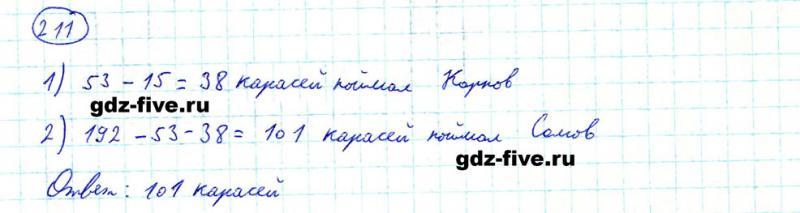 211
1) 53 - 15 = 38 карасей поймал Карпов
gdz-five.ru
2) 192 - 53 - 38 = 101 карасей поймал Сомов
gdz-five.ru
Ответ: 101 карасей